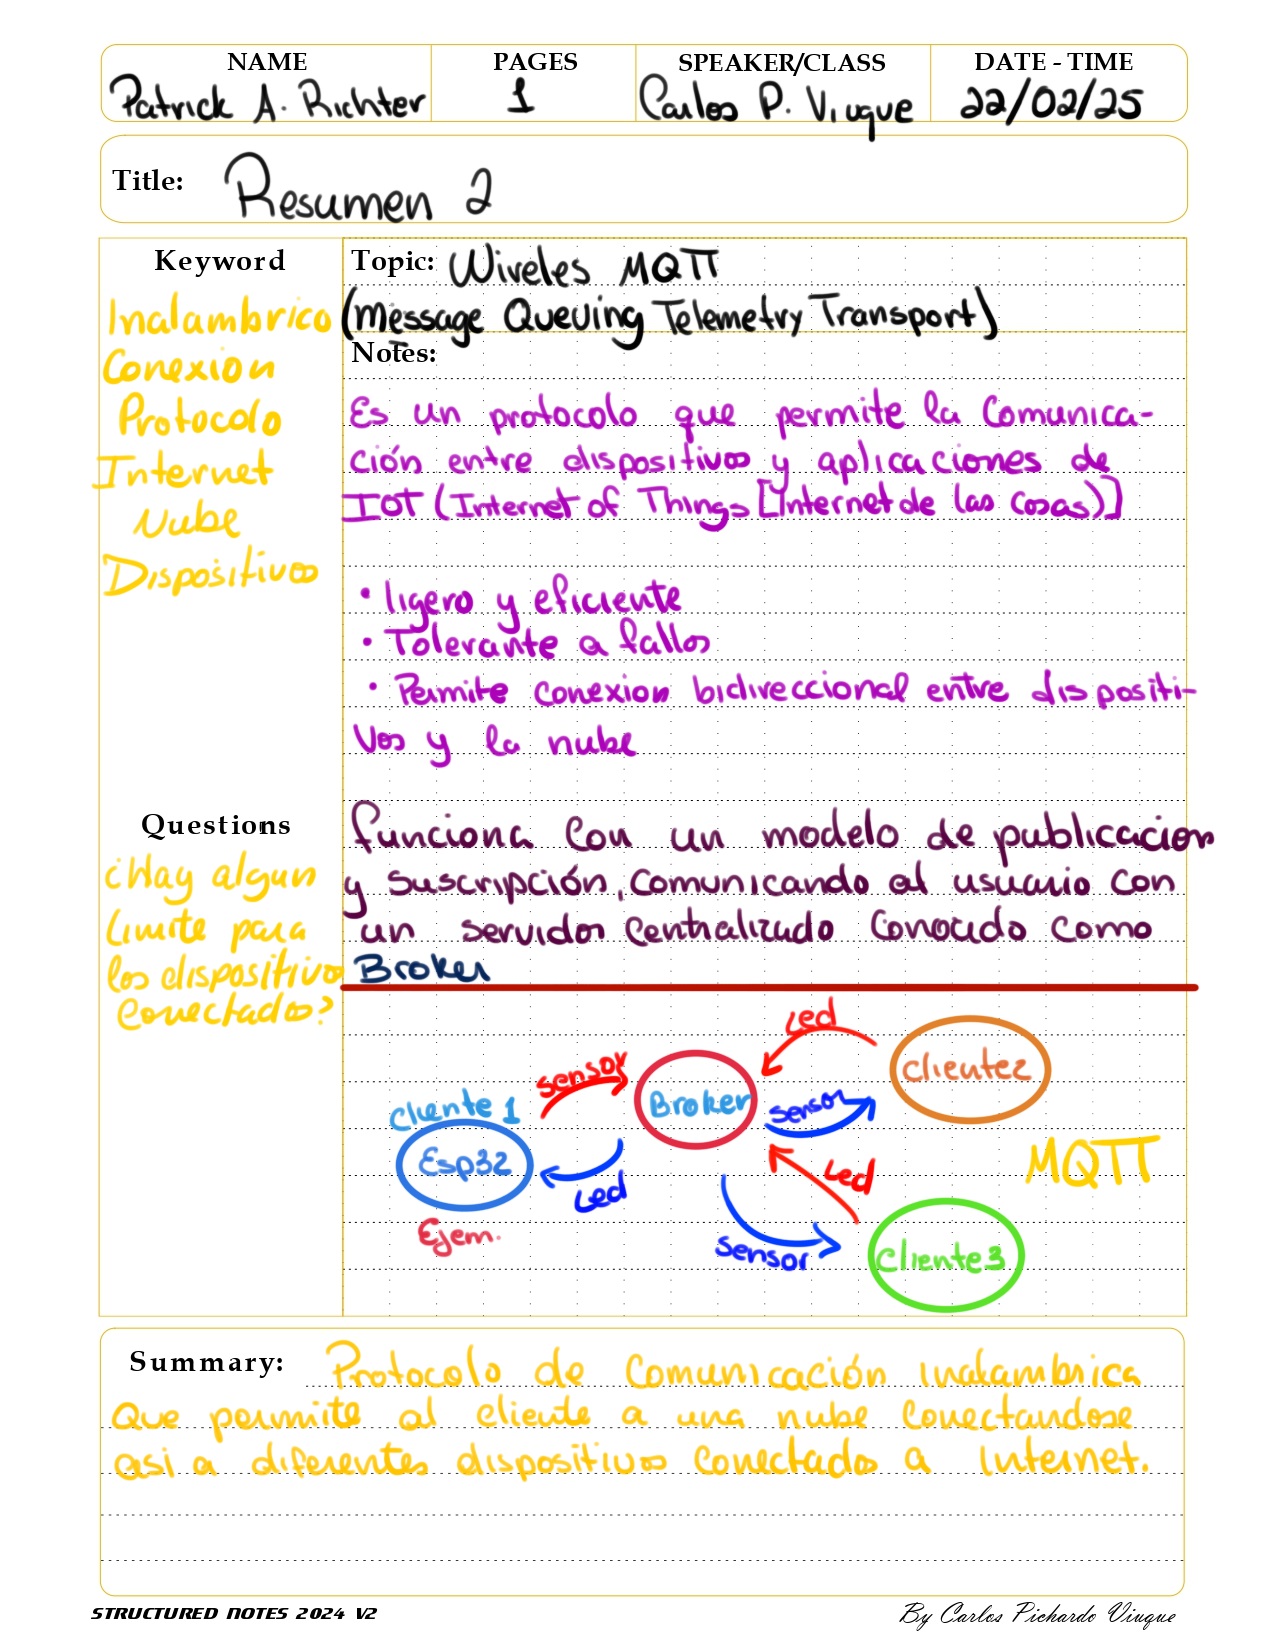 NAME
Patrick A. Richter
PAGES
1
SPEAKER/CLASS
Carlos P. Viuque
DATE - TIME
22/02/25
Title: Resumen 2
Keyword
Inalambrico
Conexion
Protocolo
Internet
Nube
Dispositivos
Topic: Wireles MQTT
(Message Queuing Telemetry Transport)
Notes:
Es un protocolo que permite la comunica-
ción entre dispositivos y aplicaciones de
IOT (Internet of Things [Internet de las cosas)]
• ligero y eficiente
• Tolerante a fallos
• Permite conexion bidireccional entre dispositi-
vos y la nube
Questions
¿Hay algun
limite para
los dispositivos
conectados?
funciona con un modelo de publicacion
y suscripción, comunicando al usuario con
un servidor centralizado conocido como
Broker
Led
Cliente2
sensor
Broker
sensor
Cliente 1
Esp32
Led
Led
MQTT
Ejem.
sensor
Cliente3
Summary: Protocolo de comunicación inalambrica
Que permite al cliente a una nube conectandose
asi a diferentes dispositivos conectados a internet.
STRUCTURED NOTES 2024 V2
By Carlos Pichardo Viuque